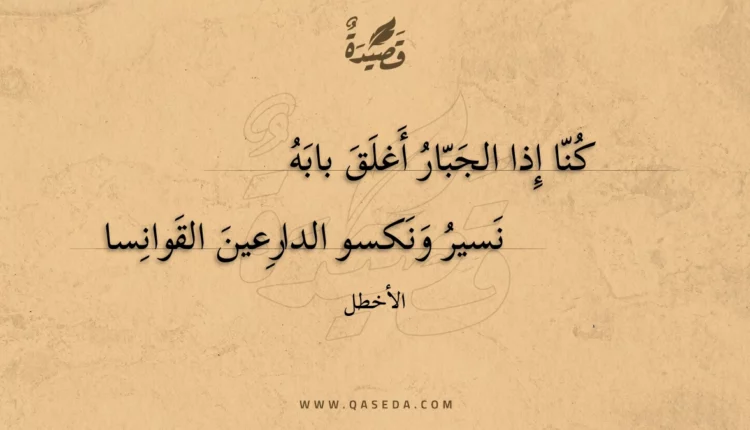 قَصِيدَةٌ
كُنّا إِذا الجَبّارُ أَغلَقَ بابَهُ
نَسيرُ وَنَكسو الدارِعينَ القَوانِسا
الأخطل
WWW.QASEDA.COM